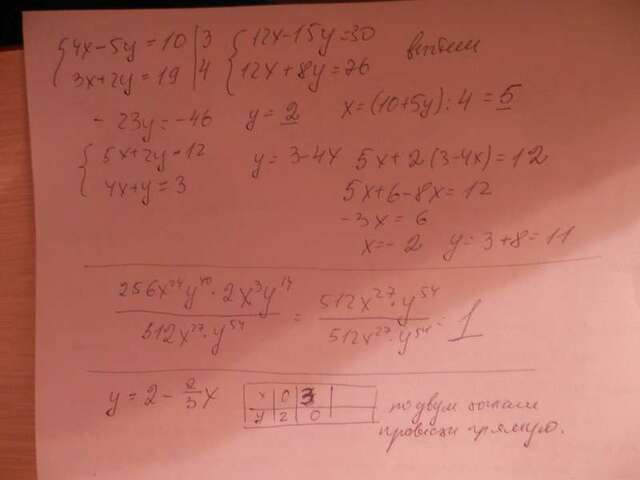 {4x-5y=10 | 3 {12x-15y=30 вычтем
3x+2y=19 | 4 12x+8y=76
-23y=-46 y=2 x=(10+5y):4=5
{5x+2y=12 y=3-4x 5x+2(3-4x)=12
4x+y=3 5x+6-8x=12
-3x=6
x=-2 y=3+8=11
256x²⁴y⁴⁰·2x³y¹⁴ / 512x²⁷·y⁵⁴ = 512x²⁷·y⁵⁴ / 512x²⁷·y⁵⁴ = 1
y=2-2/3x
x | 0 | 3
y | 2 | 0
по двум точкам
провести прямую.